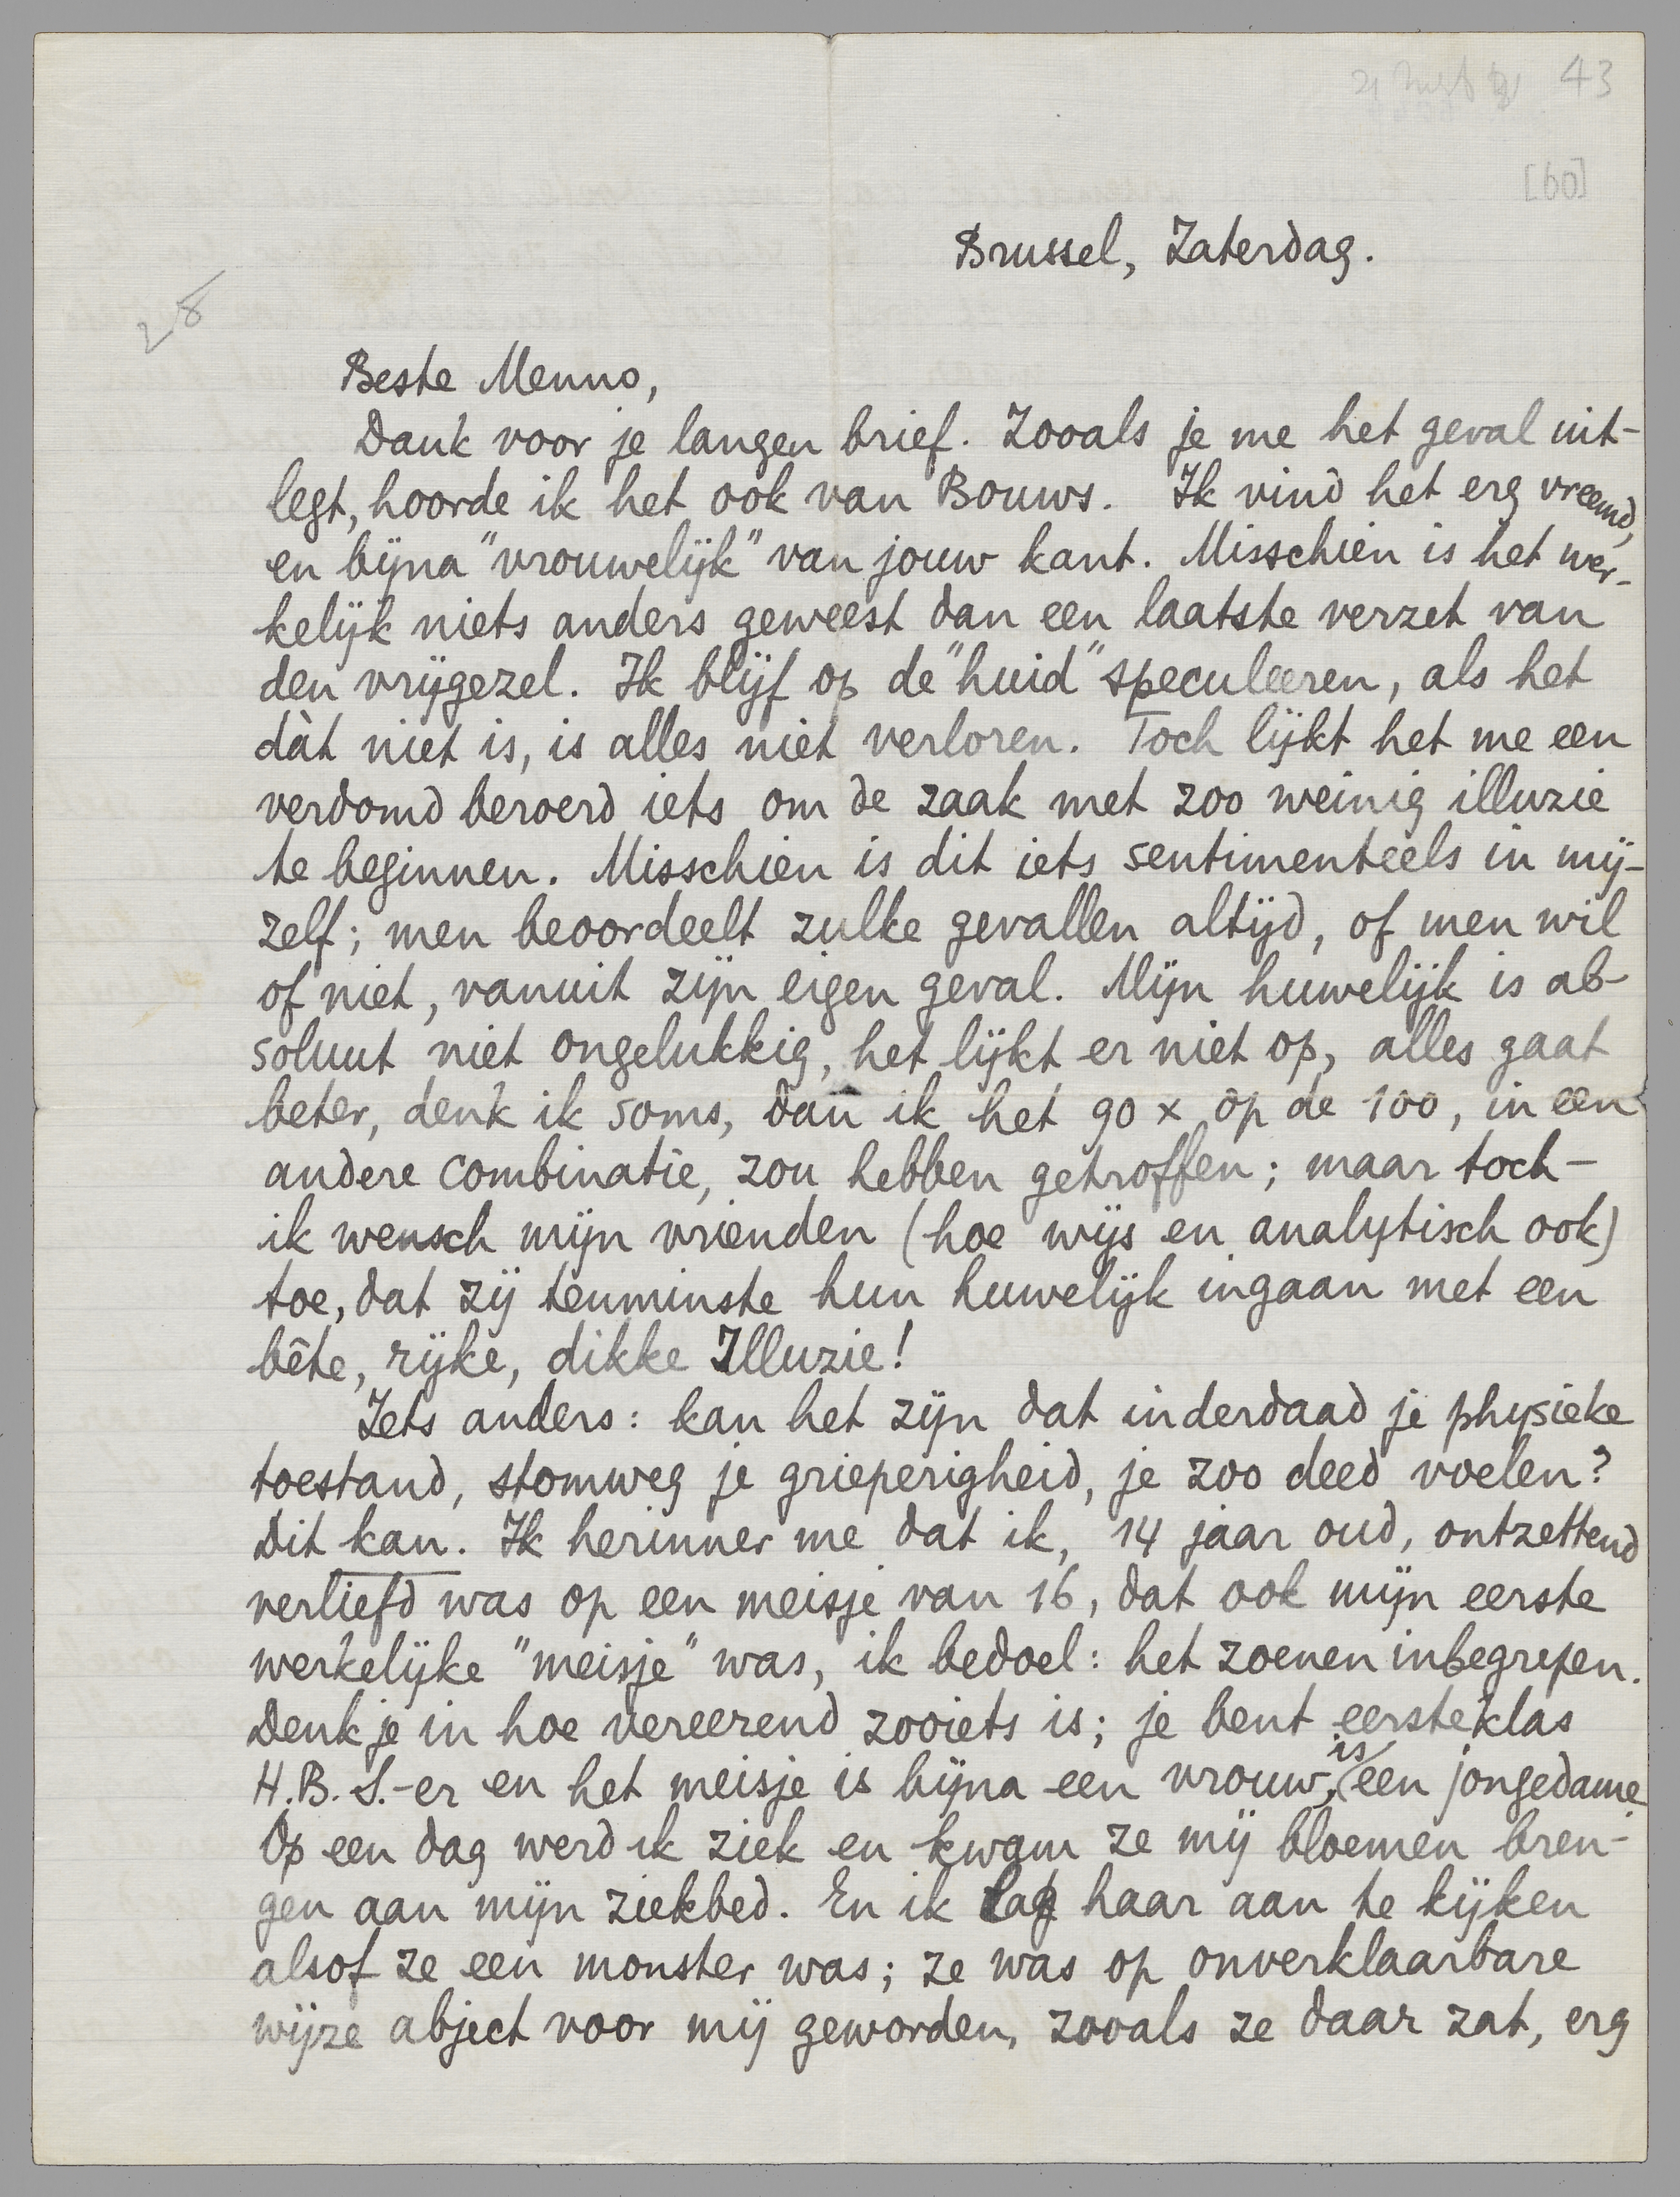 43
[60]
Brussel, Zaterdag.
28
Beste Menno,
Dank voor je langen brief. Zooals je me het geval uit-
legt, hoorde ik het ook van Bouws. Ik vind het erg vreemd,
en bijna "vrouwelijk" van jouw kant. Misschien is het wer-
kelijk niets anders geweest dan een laatste verzet van
den vrijgezel. Ik blijf op de "huid" speculeeren, als het
dàt niet is, is alles niet verloren. Toch lijkt het me een
verdomd beroerd iets om de zaak met zoo weinig illuzie
te beginnen. Misschien is dit iets sentimenteels in mij-
zelf; men beoordeelt zulke gevallen altijd, of men wil
of niet, vanuit zijn eigen geval. Mijn huwelijk is ab-
soluut niet ongelukkig, het lijkt er niet op, alles gaat
beter, denk ik soms, dan ik het 90 x op de 100, in een
andere combinatie, zou hebben getroffen; maar toch -
ik wensch mijn vrienden (hoe wijs en analytisch ook)
toe, dat zij tenminste hun huwelijk ingaan met een
bête, rijke, dikke Illuzie!
Iets anders: kan het zijn dat inderdaad je physieke
toestand, stomweg je grieperigheid, je zoo deed voelen?
Dit kan. Ik herinner me dat ik, 14 jaar oud, ontzettend
verliefd was op een meisje van 16, dat ook mijn eerste
werkelijke "meisje" was, ik bedoel: het zoenen inbegrepen.
Denk je in hoe vereerend zooiets is; je bent eersteklas
H.B.S.-er en het meisje is bijna een vrouw, is een jongedame.
Op een dag werd ik ziek en kwam ze mij bloemen bren-
gen aan mijn ziekbed. En ik lag haar aan te kijken
alsof ze een monster was; ze was op onverklaarbare
wijze abject voor mij geworden, zooals ze daar zat, erg